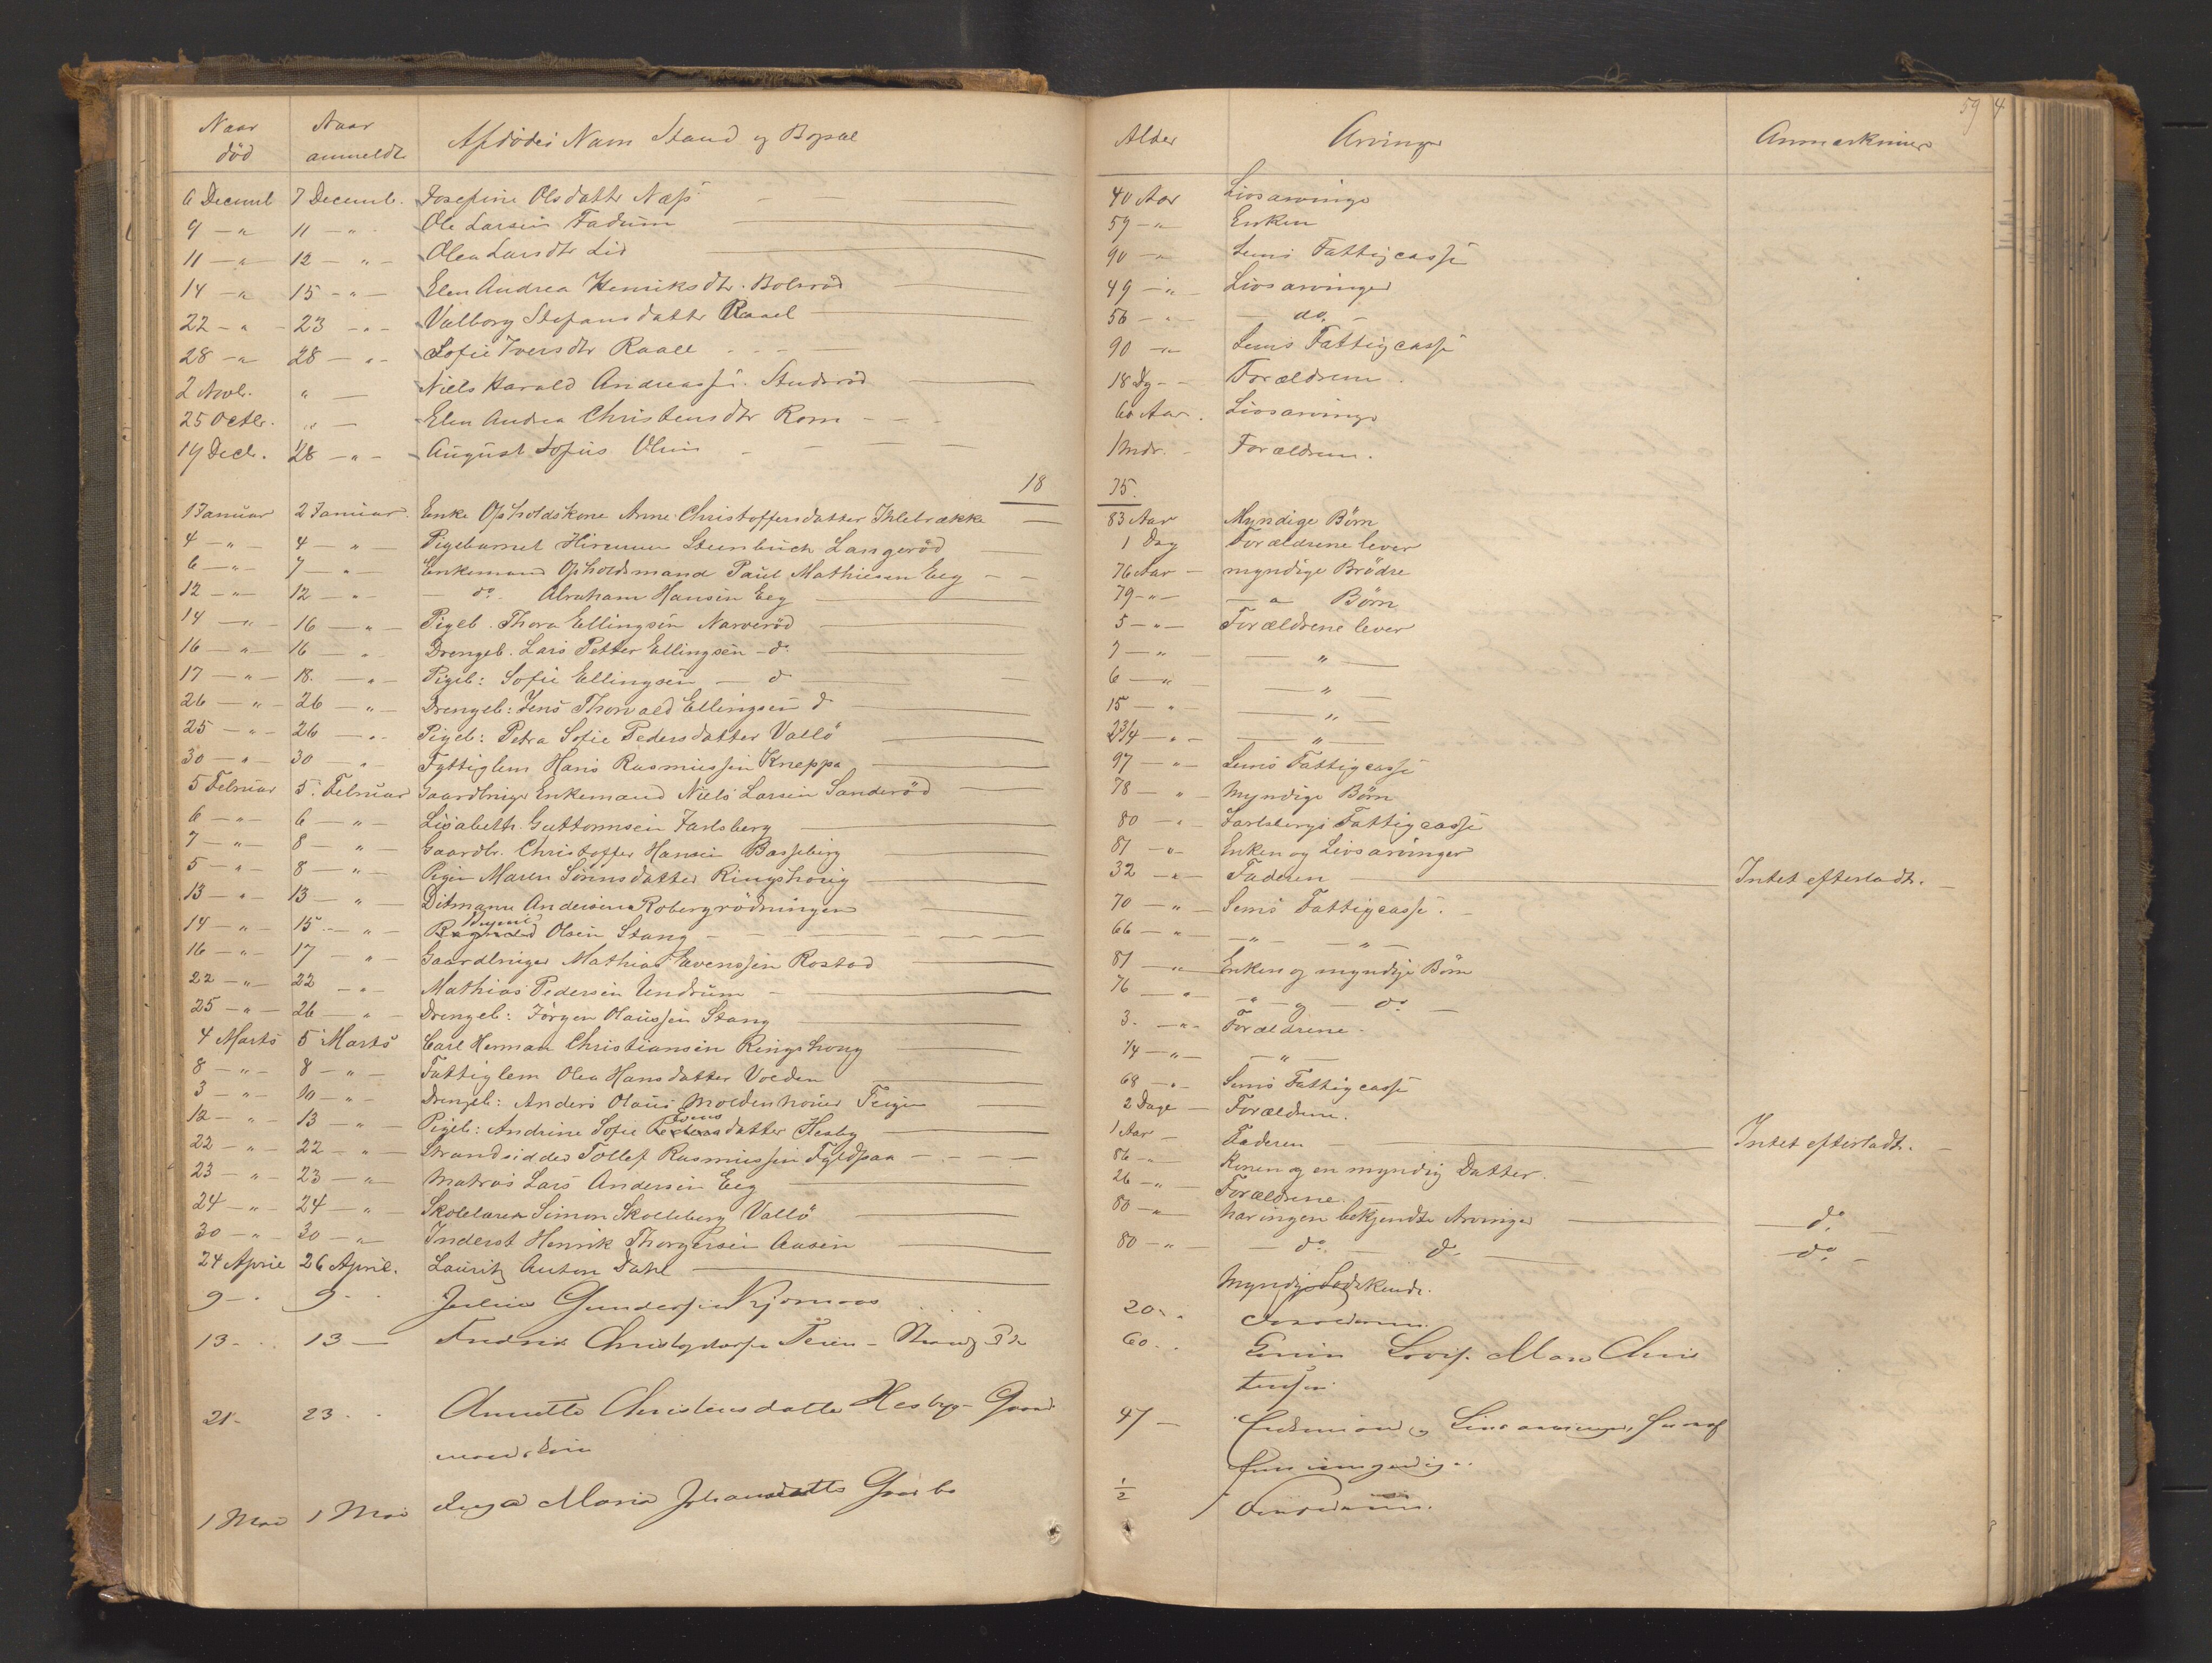 Naar død Naar anmeldt Afdødes Navn Stand og Bopæl
6 Decemb 7 Decemb. Josefine Olsdatter Næss
9 — " 11 — " Ole Larsen Fadum
11 — " 12 — " — Olea Larsdtr Lid
14 — " 15 — " — Elen Andrea Henriksdtr. Bolsrød
22 — " — 23 — " — Valborg Stefansdatter Raael
28 — " 28 — " Sofie Iversdtr Raael
2 Novb. " — Niels Harald Andreassen
25 Octbr. " — Elen Andrea Christensdtr Rom
19 Decb. 28 — " — August Sofus Olsen
18
1 Januar 2 Januar. Enke Opholdskone Anne Christoffersdatter Ihlebrække
4 — " — 4 — " — Pigebarnet Steenbuch Langerød
6 — " — 7 — " — Enkemand Opholdsmand Paul Mathiesen Eeg
12 — " — 12 — " — — do. Abraham Hansen Eeg
14 — " — 16 — " — Pigeb. Thora Ellingsen Narverød
16 — " — 16 — " Drengeb. Lars Petter Ellingsen — do
17 — " — 18. — " — Pigeb: Sofie Ellingsen — d
26 — " — 26 — " — Drengeb: Jens Thorvald Ellingsen d
25 — " — 26 — " Pigeb: Petra Sofie Pedersdatter Vallö
30 — " — 30 — " Fattiglem Hans Rasmussen Kneppa
5 Februar 5. Februar Gaardbruger Enkemand Niels Larsen Sanderöd
6 — " — 6 — " — Lisabeth Guttormsen Jarlsberg
7 — " — 8 — " — Gaardbr. Christoffer Hansen Basseberg
5 — " — 8 — " — Pigen Maren Sörensdatter Ringshoug
13 — " — 13 — " — Ditmann Andersen Robergrödningen
14 — " — 15 — " — Olsen Stang
16 — " — 17 — " — Gaardbruger Mathias Evensen Rostad
22 — " — 22 — " Mathias Pedersen Undrum
25 — " — 26 — " — Drengeb: Jörgen Olaussen Stang
4 Marts 5 Marts Carl Herman Christiansen Ringshoug
8 — " — 8 — " — Fattiglem Olea Hansdatter Volden
3 — " — 10 — " — Drengeb: Anders Olaus Moldenhauer Teigen
12 — " 13 — " — Pigeb: Andrine Sofie Jens datter Hesby
22 — " — 22 — " — Strandsidder Tollef Rasmussen Fyldpaa
23 — " — 23 — " — Matros Lars Andersen Eeg
24 — " — 24 — " — Skolelærer Simon Skolleberg Vallö
30 — " — 30 — " — Inderst Henrik Thorgersen Aasen
24 April 26 April. Lauritz Anton Dahl
9 — . 9 . . Julius Gundersen
13 — . . 13 —
21 — 23 . . Annette Christensdatter Hesby — Gaard
mands kone
1 Mai 1 Mai Inga Maria Johansdatter
59 4
Alder Arvinger Anmærkninger
40 Aar Livsarvinge
59 — " Enken
90 — " Sems Fattigcasse
49 — " — Livsarvinger
56 — " — do. —
90 — " Sems Fattigcasse
18 Dg — — Forældrene.
60 Aar. Livsarvinge
1 Mdr. — Forældrene.
75.
83 Aar Myndige Börn
1 Dag Forældrene lever
76 Aar — myndige Brödre
79 — " — — " Börn
5 — " — Forældrene lever
7 — " — — " —
6 — " — — " —
15 — " — — " —
2 3/4 — " — — " —
97 — " — Sems Fattigcasse
78 — " — Myndige Börn
80 — " Jarlsbergs Fattigcasse
81 — " — Enken og Livsarvinger
32 — " — Faderen — Intet efterladt. —
70 — " — Sems Fattigcasse. —
66 — " — — " — — " —
81 — " — Enken og myndige Börn
76 — " — — " — og — do —
3. — " — Forældrene.
1/4 — " — — " —
68 — " — Sems Fattigcasse
2 Dage — Forældrene.
1 Aar — Faderen — Intet efterladt. —
86 — " Konen og en myndig Datter.
26 — " — Forældrene.
80 — " har ingen bekjendte Arvinger — do. —
80 — " — — do. — do — — do. —
Myndig Södskende.
20 . . Forældrene.
60 . .
47 — Enkemand og Livsarvinger,
1/2 Forældrene.